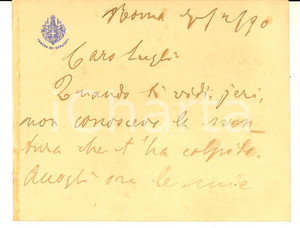 CAMERA DEI DEPUTATI
Roma
Caro Luigi
Quando ti vidi, jeri,
non conoscevo la sven
tura che t'ha colpito.
Accogli ora le mie